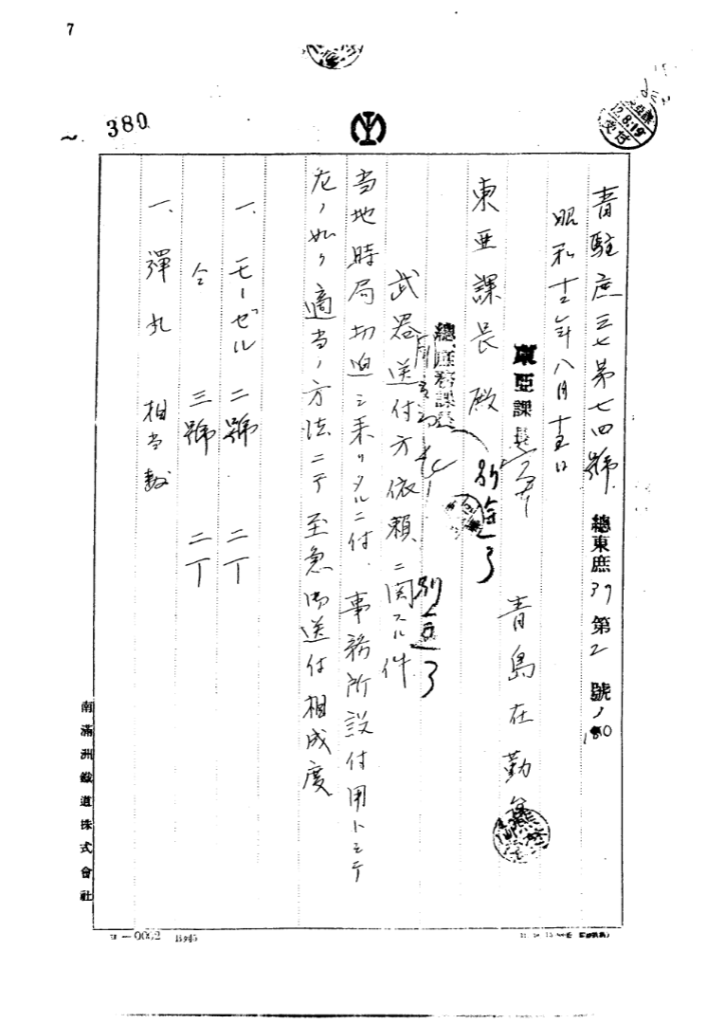 7
380
12.8.19
受付
青駐庶三七第七四號
總東庶37第2號ノ180
昭和十二年八月十五日
東亜課長
青島在勤
東亜課長殿
總庶務課長
武器送付方依頼ニ関スル件
当地時局切迫シ来リタルニ付、事務所設付用トシテ
左ノ如ク適当ノ方法ニテ至急御送付相成度
一、モーゼル 二號 二丁
仝 三號 二丁
一、彈丸 相当数
南滿洲鐵道株式會社